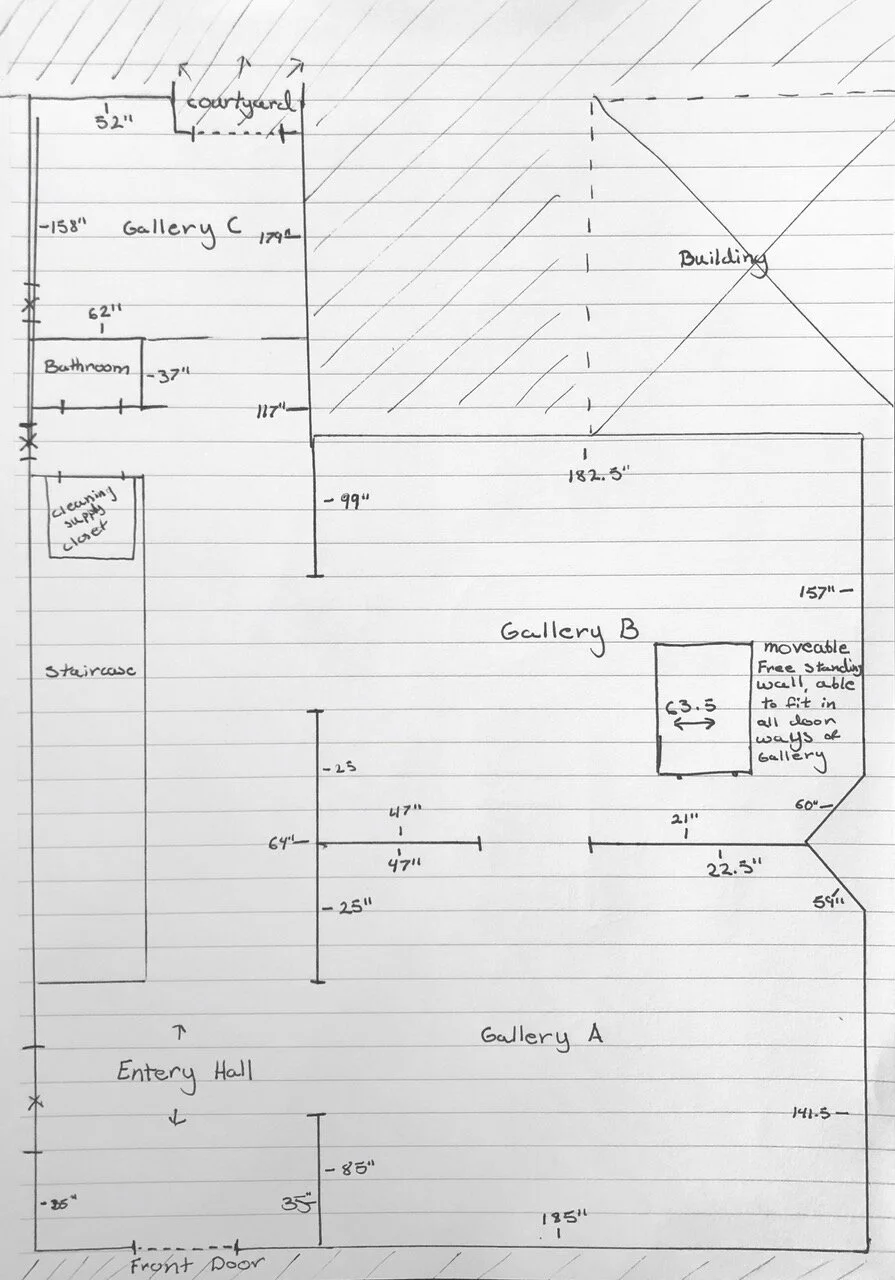 courtyard
52"
-158"
Gallery C
179"
62"
Bathroom
-37"
117"
Building
182.5"
-99"
cleaning
supply
closet
157"
Gallery B
Staircase
moveable
Free standing
wall, able
to fit in
all door
ways of
Gallery
63.5
-25
47"
60"
21"
64"
47"
22.5"
-25"
59"
Gallery A
Entery Hall
141.5
-85"
35"
185"
Front Door